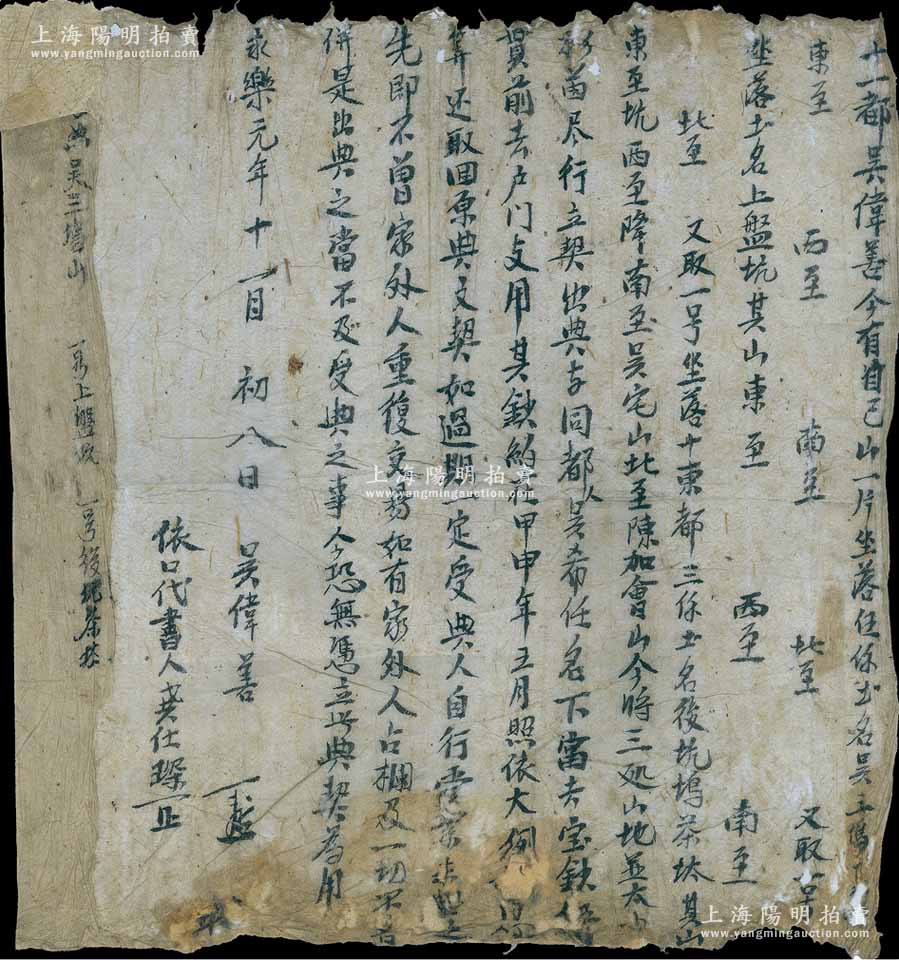 十一都吴偉善今有自己山一片坐落任保土名吴三塢
東至 西至 南至 北至 又取一号
坐落土名上盤坑其山東至 西至 南至
北至 又取一号坐落十東都三保土名後坑塢茶坮其山
東至坑西至降南至吴宅山北至陳加會山今將三処山地並
茵尽行立契出典与同都人吴希任名下當去宝鈔
貫前去户门支用其鈔約在甲申年五月照依大例
筭还取回原典文契如過期一定受典人自行
先即不曾家外人重復交易如有家外人占欄及一切不
併是出典之當不及受典之事今恐無憑立此典契為用
永樂元年十一月初八日 吴偉善
依口代書人 仕琛
典吴三塢山 一号上盤坑 一号後坑茶坮
上海陽明拍賣
www.yangmingauction.com
上海陽明拍賣
www.yangmingauction.com
上海陽明拍賣
www.yangmingauction.com
上海陽明拍賣
www.yangmingauction.com